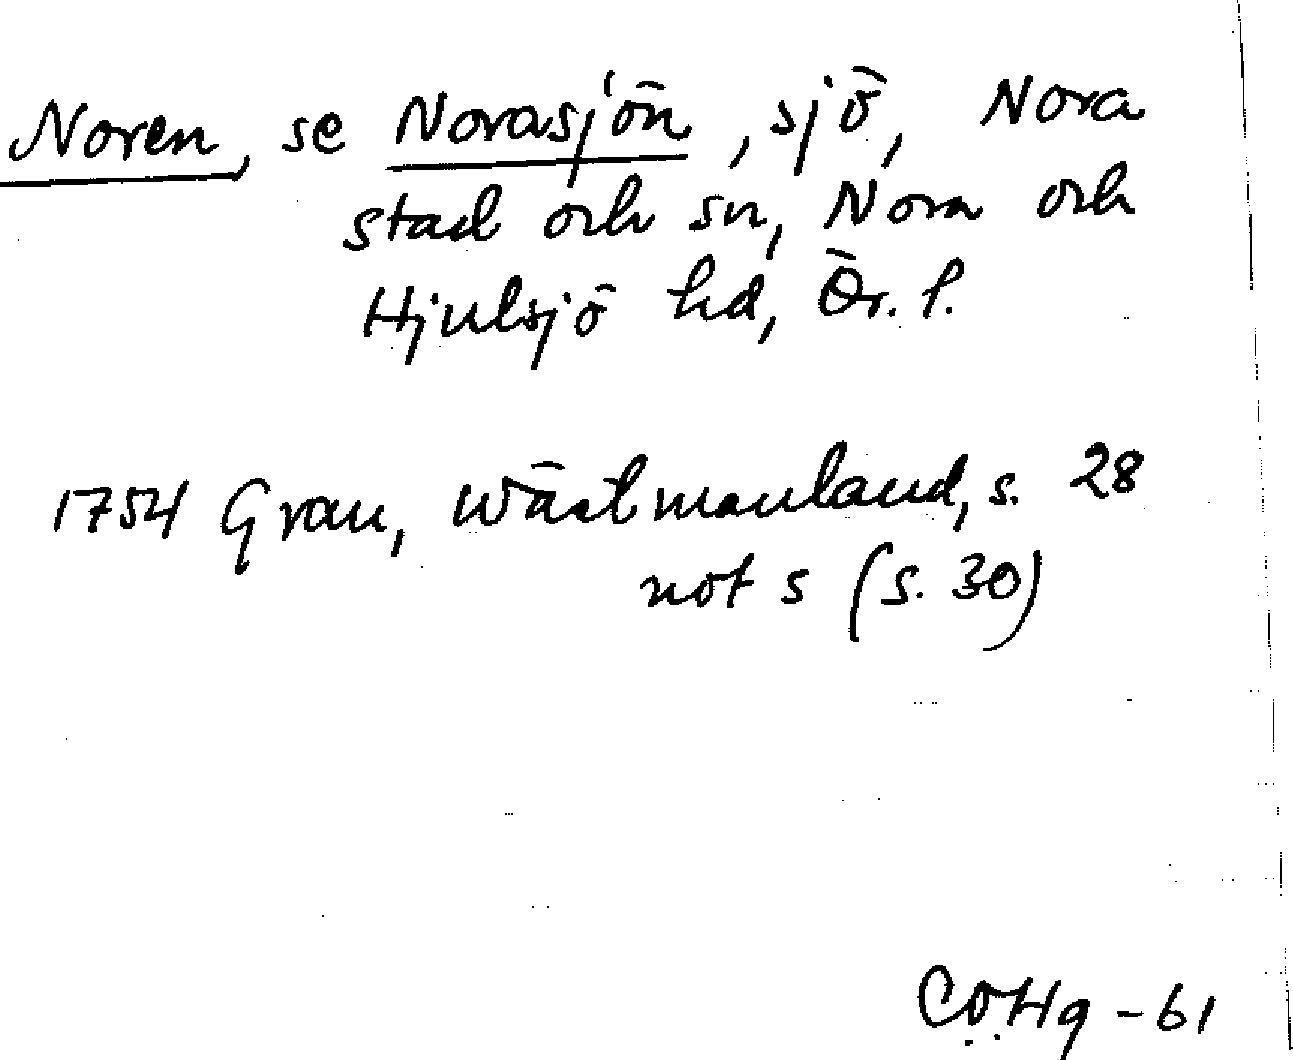 Noren, se Norasjön, sjö, Nora
stad och sn, Nora och
Hjulsjö hd, Ör. l.
1754 Grau, Wästmanland, s. 28
not s (s. 30)
CÖHg-61